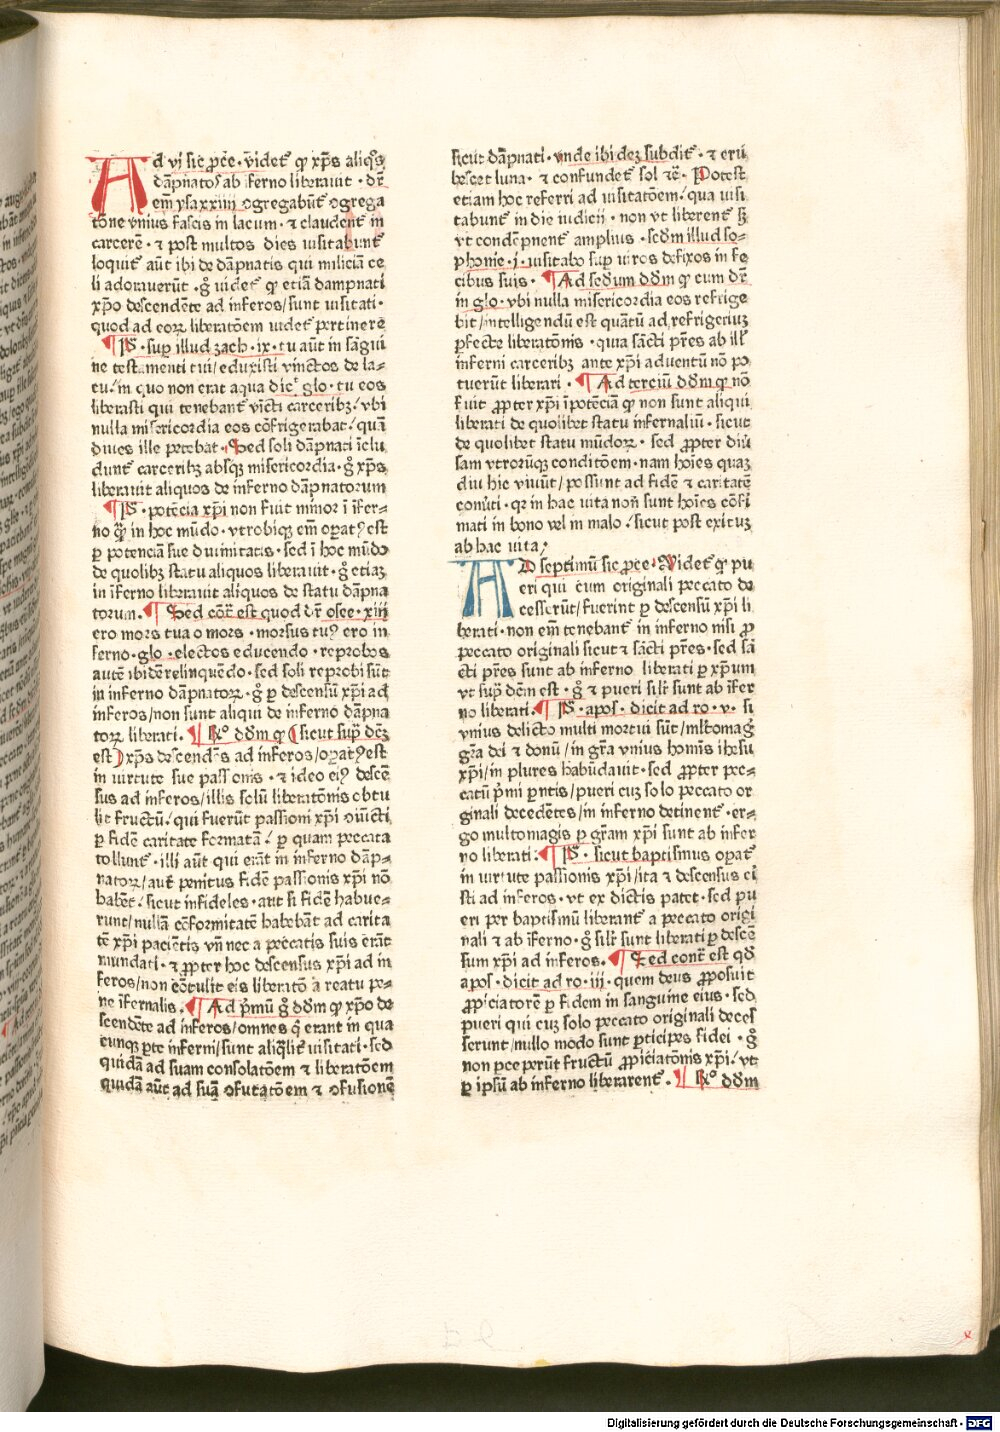 Ad vi sic ꝓce͛ · videt͛ ꝙ xp̄s aliq̊s
dāpnatos ab īferno liberauit · dr̄
em̄ ysa xxiiii ꝯgregabūt͛ ꝯgrega
tōne vnius fascis in lacum · ⁊ claudent͛ in
carcerē · ⁊ post multos dies uisitabunt͛
loquit͛ aūt ibi de dāpnatis qui miliciā ce
li adorauerūt · g̊ uidet͛ ꝙ etiā dampnati
xp̄o descendēte ad inferos/sunt uisitati ·
quod ad eoꝝ liberatōem uidet͛ pertinere
¶ P̄͛ · sup̄ illud zach · ix · tu aūt in sāgui
ne testamenti tui/eduxisti vinctos de la⸗
cu/in quo non erat aqua dic͛ glo · tu eos
liberasti qui tenebant͛ vīcti carceribꝫ/vbi
nulla misericordia eos cōfrigerabat/quā
diues ille petebat · Sed soli dāpnati īclu
dunt͛ carceribꝫ absqꝫ misericordia · g̊ xp̄s
liberauit aliquos de inferno dāpnatorum
¶ P̄͛ · potēcia xp̄i non fuit minor ī īfer⸗
no q̄ꝫ in hoc mūdo · vtrobiqꝫ em̄ oꝑatꝰ est
ꝑ potenciā sue diuinitatis · sed ī hoc mūdo
de quolibꝫ statu aliquos liberauit · g̊ etiaꝫ
in īferno liberauit aliquos de statu dāpna
torum · ¶ Sed cōt͛ est quod dr̄ osee · xiii
ero mors tua o mors · morsus tuꝰ ero in
ferno · glo · electos educendo · reprobos
autē ibidē relinquēdo · sed soli reprobi sūt
in inferno dāpnatoꝝ · g̊ ꝑ descensū xp̄i ad
inferos/non sunt aliqui de inferno dāpna
toꝝ liberati · ¶ R̊ dd̄m ꝙ sicut sup̄ dcm̄
est xp̄s descendēs ad inferos/oꝑatꝰ est
in uirtute sue passionis · ⁊ ideo eiꝰ descē
sus ad inferos/illis solū liberatōnis cōtu
lit fructū/qui fuerūt passioni xp̄i ꝯiūcti
ꝑ fidē caritate formatā/ꝑ quam peccata
tollunt͛ · illi aūt qui erāt in inferno dāp⸗
natoꝝ/aut penitus fidē passionis xp̄i nō
habēt/sicut infideles · aut si fidē habue⸗
runt/nullā cōformitatē habebāt ad carita
tē xp̄i pacientis vn̄ nec a peccatis suis erāt
mundati · ⁊ ꝓpter hoc descensus xp̄i ad in
feros/non cōtulit eis liberatō a reatu pe⸗
ne īfernalis · ¶ Ad p̄mū g̊ dd̄m ꝙ xp̄o de
scendēte ad inferos/omnes q̇ erant in qua
cunqꝫ ꝑte inferni/sunt aliq̄lit͛ uisitati · sed
quidā ad suam consolatōem ⁊ liberatōem
quidā aūt ad suā ꝯfutatōem ⁊ ꝯfusionē
sicut dāpnati · vnde ibidez subdit͛ · ⁊ eru
bescet luna · ⁊ confundet͛ sol ⁊c̄ · Potest
etiam hoc referri ad uisitatōem/qua uisi
tabunt͛ in die iudicii · non vt liberent͛ sꝫ
vt condēpnent͛ amplius · scdm illud so⸗
phonie · i · uisitabo sup̄ uiros defixos in fe
cibus suis · ¶ Ad scdum dd̄m ꝙ cum dr̄
in glo · vbi nulla misericordia eos refrige
bit/intelligendū est quātū ad refrigeriuꝫ
ꝑfecte liberatōnis · quia sācti p̄res ab ill̄
inferni carceribꝫ ante xp̄i aduentū nō po
tuerūt liberari · ¶ Ad terciū dd̄m ꝙ nō
fuit ꝓpter xp̄i īpotēciā ꝙ non sunt aliqui
liberati de quolibet statu infernaliū · sicut
de quolibet statu mūdoꝝ · sed ꝓpter diu͛
sam vtrorūqꝫ conditōem · nam hoīes quaꝫ
diu hic uiuūt/possunt ad fidē ⁊ caritatē
conu͛ti · qꝛ in hac uita non̄ sunt hoīes cōfi
mati in bono vel in malo/sicut post exituꝫ
ab hac uita/
AD septimū sic ꝓce · Videt͛ ꝙ pu
eri qui cum originali peccato de
cesserūt/fuerint ꝑ descensū xp̄i li
berati · non em̄ tenebant͛ in inferno nisi ꝓ
peccato originali sicut ⁊ sācti p̄res · sed sā
cti p̄res sunt ab inferno liberati ꝑ xp̄um
vt sup̄ dcm̄ est · g̊ ⁊ pueri silr̄ sunt ab īfer
no liberati · ¶ P̄͛ · apos · dicit ad ro · v · si
vnius delicto multi mortui sūt/ml̄tomaḡ
gr̄a dei ⁊ donū/in gr̄a vnius homīs ihesu
xp̄i/in plures habūdauit · sed ꝓpter pec⸗
catū p̄mi ꝑntis/pueri cuꝫ solo peccato or
ginali decedētes/in inferno detinent͛ · er⸗
go multomagis ꝑ gr̄am xp̄i sunt ab infer
no liberati · ¶ P̄͛ · sicut baptismus oꝑat͛
in uirtute passionis xp̄i/ita ⁊ descensus cr̄i
sti ad inferos · vt ex dictis patet · sed pu
eri per baptismū liberant͛ a peccato origi
nali ⁊ ab īferno · g̊ silr̄ sunt liberati ꝑ descē
sum xp̄i ad inferos · ¶ Sed cont͛ est qd̄
apos · dicit ad ro · iii · quem deus ꝓposuit
ꝓpiciatorē ꝑ fidem in sanguine eius · sed
pueri qui cuꝫ solo peccato originali deces
serunt/nullo modo sunt ꝑticipes fidei · g̊
non ꝑceperūt fructū ꝓpiciatōnis xp̄i/vt
ꝑ ipsū ab inferno liberarent͛ · ¶ R̊ dd̄m
Digitalisierung gefördert durch die Deutsche Forschungsgemeinschaft - DFG